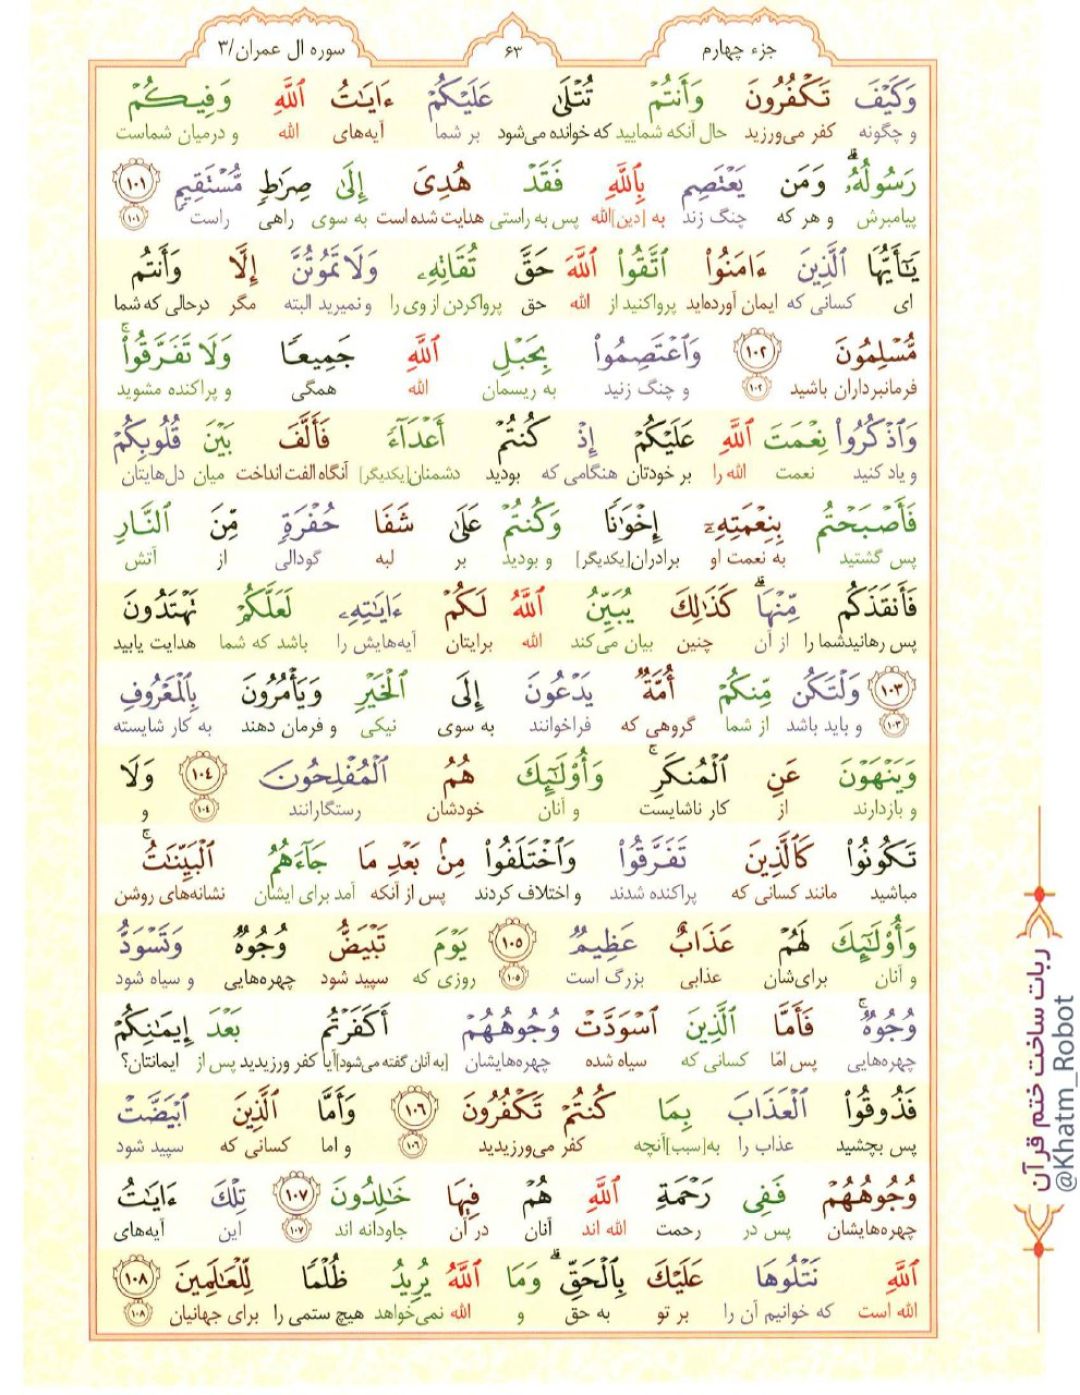 جزء چهارم
۶۳
سوره آل عمران/۳
وَكَيْفَ تَكْفُرُونَ وَأَنتُمْ تُتْلَىٰ عَلَيْكُمْ ءَايَـٰتُ ٱللَّهِ وَفِيكُمْ
و چگونه کفر می‌ورزید حال آنکه شمایید که خوانده می‌شود بر شما آیه‌های الله و درمیان شماست
رَسُولُهُۥ ۗ وَمَن يَعْتَصِم بِٱللَّهِ فَقَدْ هُدِىَ إِلَىٰ صِرَٰطٍ مُّسْتَقِيمٍ ١٠١
پیامبرش و هر که چنگ زند به [دین]الله پس به راستی هدایت شده است به سوی راهی راست ۱۰۱
يَـٰٓأَيُّهَا ٱلَّذِينَ ءَامَنُوا۟ ٱتَّقُوا۟ ٱللَّهَ حَقَّ تُقَاتِهِۦ وَلَا تَمُوتُنَّ إِلَّا وَأَنتُم
ای کسانی که ایمان آورده‌اید پرواکنید از الله حق پرواکردن از وی را و نمیرید البته مگر درحالی که شما
مُّسْلِمُونَ ١٠٢ وَٱعْتَصِمُوا۟ بِحَبْلِ ٱللَّهِ جَمِيعًا وَلَا تَفَرَّقُوا۟ ۚ
فرمانبرداران باشید ۱۰۲ و چنگ زنید به ریسمان الله همگی و پراکنده مشوید
وَٱذْكُرُوا۟ نِعْمَتَ ٱللَّهِ عَلَيْكُمْ إِذْ كُنتُمْ أَعْدَآءً فَأَلَّفَ بَيْنَ قُلُوبِكُمْ
و یاد کنید نعمت الله را بر خودتان هنگامی که بودید دشمنان[یکدیگر] آنگاه الفت انداخت میان دل‌هایتان
فَأَصْبَحْتُم بِنِعْمَتِهِۦٓ إِخْوَٰنًا وَكُنتُمْ عَلَىٰ شَفَا حُفْرَةٍ مِّنَ ٱلنَّارِ
پس گشتید به نعمت او برادران[یکدیگر] و بودید بر لبه گودالی از آتش
فَأَنقَذَكُم مِّنْهَا ۗ كَذَٰلِكَ يُبَيِّنُ ٱللَّهُ لَكُمْ ءَايَـٰتِهِۦ لَعَلَّكُمْ تَهْتَدُونَ
پس رهانیدشما را از آن چنین بیان می‌کند الله برایتان آیه‌هایش را باشد که شما هدایت یابید
١٠٣ وَلْتَكُن مِّنكُمْ أُمَّةٌ يَدْعُونَ إِلَى ٱلْخَيْرِ وَيَأْمُرُونَ بِٱلْمَعْرُوفِ
۱۰۳ و باید باشد از شما گروهی که فراخوانند به سوی نیکی و فرمان دهند به کار شایسته
وَيَنْهَوْنَ عَنِ ٱلْمُنكَرِ ۚ وَأُو۟لَـٰٓئِكَ هُمُ ٱلْمُفْلِحُونَ ١٠٤ وَلَا
و بازدارند از کار ناشایست و آنان خودشان رستگارانند ۱۰۴ و
تَكُونُوا۟ كَٱلَّذِينَ تَفَرَّقُوا۟ وَٱخْتَلَفُوا۟ مِنۢ بَعْدِ مَا جَآءَهُمُ ٱلْبَيِّنَـٰتُ ۚ
مباشید مانند کسانی که پراکنده شدند و اختلاف کردند پس از آنکه آمد برای ایشان نشانه‌های روشن
وَأُو۟لَـٰٓئِكَ لَهُمْ عَذَابٌ عَظِيمٌ ١٠٥ يَوْمَ تَبْيَضُّ وُجُوهٌ وَتَسْوَدُّ
و آنان برای‌شان عذابی بزرگ است ۱۰۵ روزی که سپید شود چهره‌هایی و سیاه شود
وُجُوهٌ ۚ فَأَمَّا ٱلَّذِينَ ٱسْوَدَّتْ وُجُوهُهُمْ أَكَفَرْتُم بَعْدَ إِيمَـٰنِكُمْ
چهره‌هایی پس امّا کسانی که سیاه شده چهره‌هایشان [به آنان گفته می‌شود]آیا کفر ورزیدید پس از ایمانتان؟
فَذُوقُوا۟ ٱلْعَذَابَ بِمَا كُنتُمْ تَكْفُرُونَ ١٠٦ وَأَمَّا ٱلَّذِينَ ٱبْيَضَّتْ
پس بچشید عذاب را به[سبب]آنچه کفر می‌ورزیدید ۱۰۶ و اما کسانی که سپید شود
وُجُوهُهُمْ فَفِى رَحْمَةِ ٱللَّهِ هُمْ فِيهَا خَـٰلِدُونَ ١٠٧ تِلْكَ ءَايَـٰتُ
چهره‌هایشان پس در رحمت الله اند آنان در آن جاودانه اند ۱۰۷ این آیه‌های
ٱللَّهِ نَتْلُوهَا عَلَيْكَ بِٱلْحَقِّ ۗ وَمَا ٱللَّهُ يُرِيدُ ظُلْمًا لِّلْعَـٰلَمِينَ ١٠٨
الله است که خوانیم آن را بر تو به حق و الله نمی‌خواهد هیچ ستمی را برای جهانیان ۱۰۸
ربات ساخت ختم قرآن
@Khatm_Robot